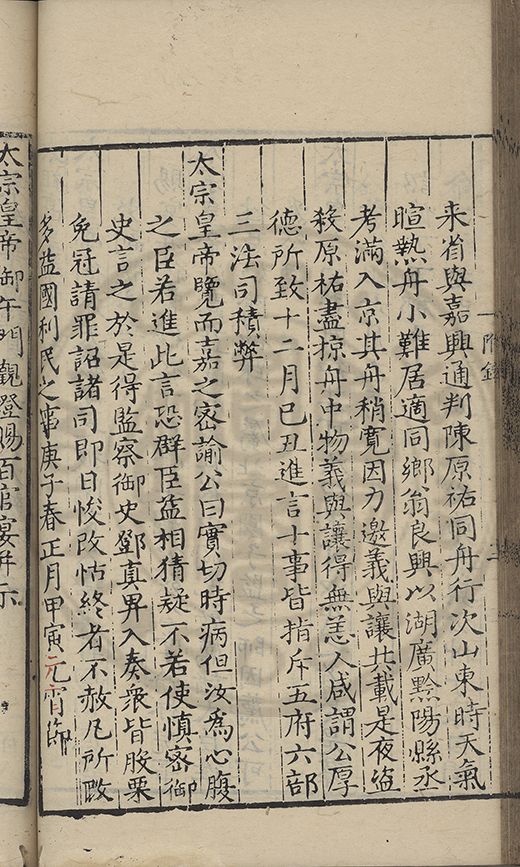 來省與嘉興通判陳原祐同舟行次山東時天氣
暄熱舟小難居適同鄉翁良興以湖廣黔陽縣丞
考滿入京其舟稍寬因力邀義與讓共載是夜盜
殺原祐盡掠舟中物義與讓得無恙人咸謂公厚
德所致十二月己丑進言十事皆指斥五府六部
三法司積弊
太宗皇帝覽而嘉之密諭公曰實切時病但汝為心腹
之臣若進此言恐群臣益相猜疑不若使慎密御
史言之於是得監察御史鄧真畀入奏眾皆股栗
免冠請罪詔諸司即日悛改怙終者不赦凡所改
多益國利民之事庚子春正月甲寅元宵節
太宗皇帝御午門觀燈賜百官宴并示